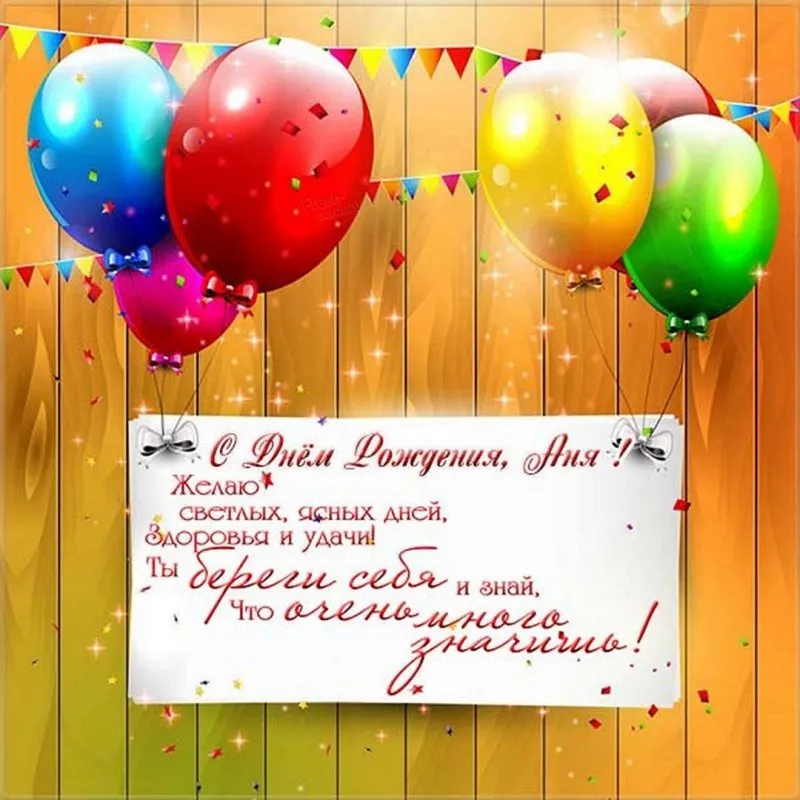 С Днём Рождения, Аня !
Желаю
светлых, ясных дней,
Здоровья и удачи!
Ты береги себя и знай,
Что очень много
значишь!